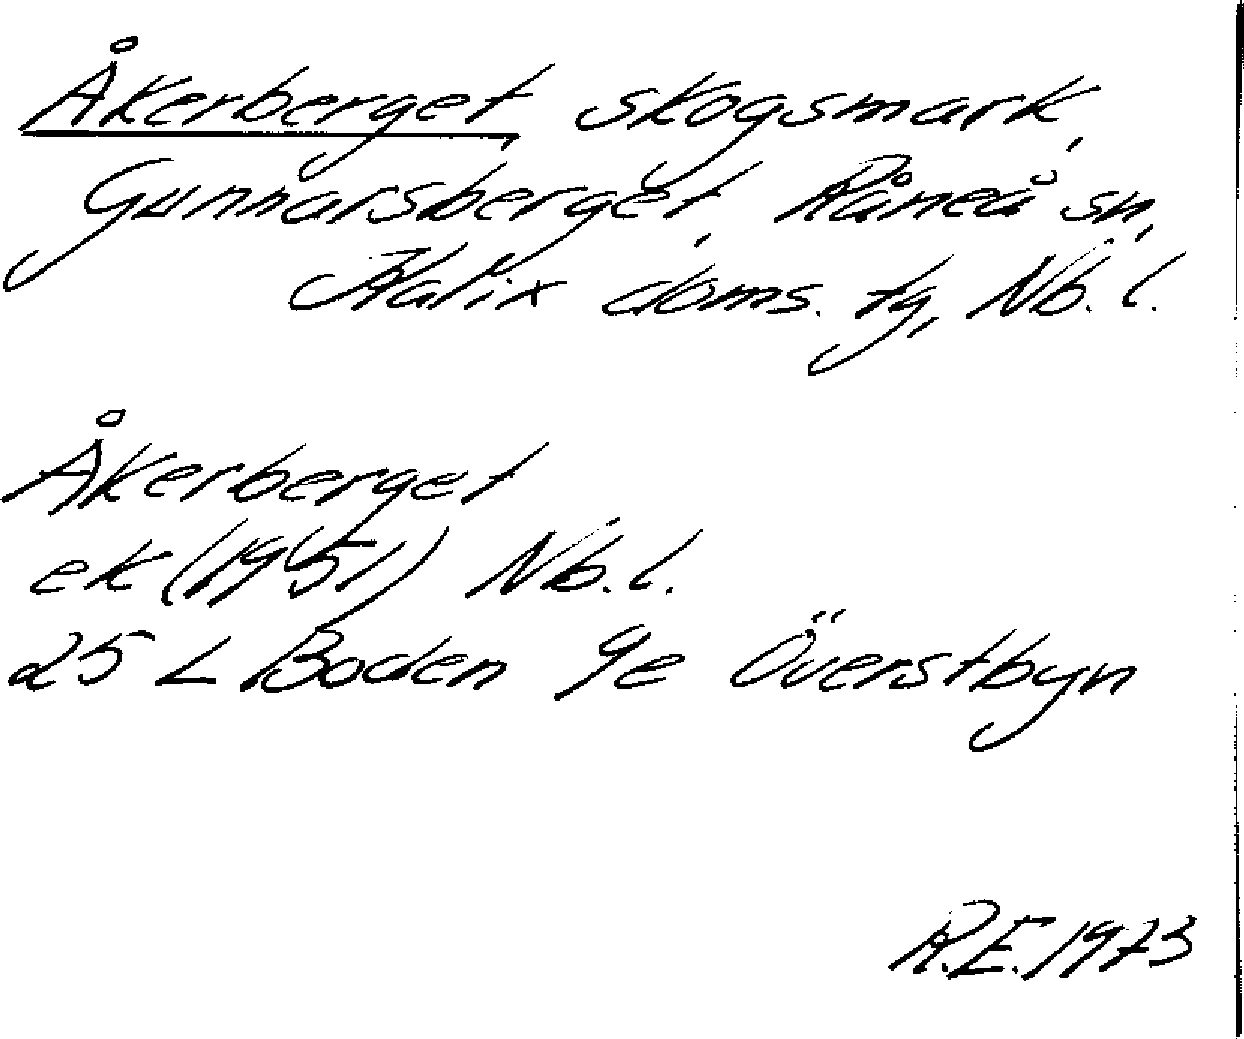 Åkerberget, skogsmark,
Gunnarsberget, Råneå sn,
Kalix doms. tg, Nb. l.
Åkerberget
ek (1951) Nb. l.
25 L Boden 9e Överstbyn
R.E. 1973